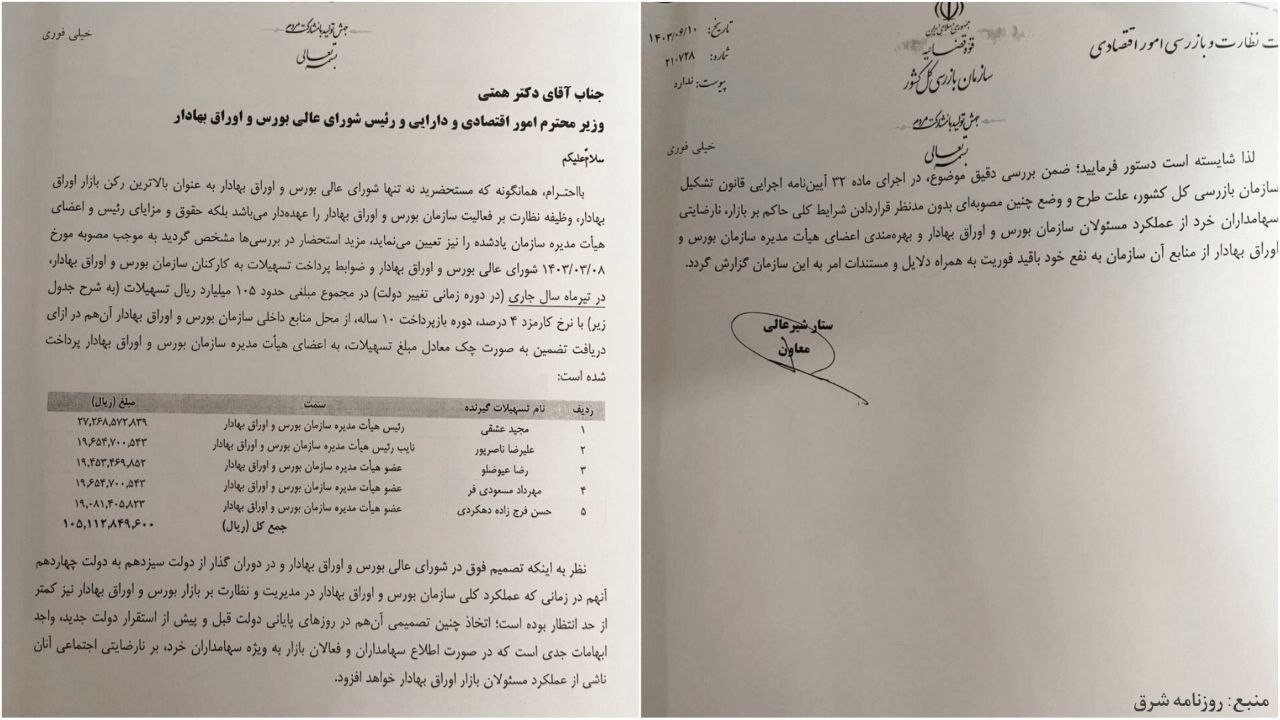 خیلی فوری
جهش تولید با مشارکت مردم
بسمه تعالی
جناب آقای دکتر همتی
وزیر محترم امور اقتصادی و دارایی و رئیس شورای عالی بورس و اوراق بهادار
سلام علیکم
بااحترام، همانگونه که مستحضرید نه تنها شورای عالی بورس و اوراق بهادار به عنوان بالاترین رکن بازار اوراق
بهادار، وظیفه نظارت بر فعالیت سازمان بورس و اوراق بهادار را عهده‌دار می‌باشد بلکه حقوق و مزایای رئیس و اعضای
هیأت مدیره سازمان یادشده را نیز تعیین می‌نماید، مزید استحضار در بررسی‌ها مشخص گردید به موجب مصوبه مورخ
۱۴۰۳/۰۳/۰۸ شورای عالی بورس و اوراق بهادار و ضوابط پرداخت تسهیلات به کارکنان سازمان بورس و اوراق بهادار،
در تیرماه سال جاری (در دوره زمانی تغییر دولت) در مجموع مبلغی حدود ۱۰۵ میلیارد ریال تسهیلات (به شرح جدول
زیر) با نرخ کارمزد ۴ درصد، دوره بازپرداخت ۱۰ ساله، از محل منابع داخلی سازمان بورس و اوراق بهادار آن‌هم در ازای
دریافت تضمین به صورت چک معادل مبلغ تسهیلات، به اعضای هیأت مدیره سازمان بورس و اوراق بهادار پرداخت
شده است:
ردیف نام تسهیلات گیرنده سمت مبلغ (ریال)
۱ مجید عشقی رئیس هیأت مدیره سازمان بورس و اوراق بهادار ۲۷,۲۶۸,۵۷۲,۸۳۹
۲ علیرضا ناصرپور نایب رئیس هیأت مدیره سازمان بورس و اوراق بهادار ۱۹,۶۵۴,۷۰۰,۵۴۳
۳ رضا عیوضلو عضو هیأت مدیره سازمان بورس و اوراق بهادار ۱۹,۴۵۳,۴۶۹,۸۵۲
۴ مهرداد مسعودی فر عضو هیأت مدیره سازمان بورس و اوراق بهادار ۱۹,۶۵۴,۷۰۰,۵۴۳
۵ حسن فرج زاده دهکردی عضو هیأت مدیره سازمان بورس و اوراق بهادار ۱۹,۰۸۱,۴۰۵,۸۲۳
جمع کل (ریال) ۱۰۵,۱۱۲,۸۴۹,۶۰۰
نظر به اینکه تصمیم فوق در شورای عالی بورس و اوراق بهادار و در دوران گذار از دولت سیزدهم به دولت چهاردهم
آنهم در زمانی که عملکرد کلی سازمان بورس و اوراق بهادار در مدیریت و نظارت بر بازار بورس و اوراق بهادار نیز کمتر
از حد انتظار بوده است؛ اتخاذ چنین تصمیمی آن‌هم در روزهای پایانی دولت قبل و پیش از استقرار دولت جدید، واجد
ابهامات جدی است که در صورت اطلاع سهامداران و فعالان بازار به ویژه سهامداران خرد، بر نارضایتی اجتماعی آنان
ناشی از عملکرد مسئولان بازار اوراق بهادار خواهد افزود.
جمهوری اسلامی ایران
قوه قضائیه
سازمان بازرسی کل کشور
ت نظارت و بازرسی امور اقتصادی
تاریخ: ۱۴۰۳/۰۶/۱۰
شماره: ۲۱۰۷۲۸
پیوست: ندارد
جهش تولید با مشارکت مردم
بسمه تعالی
خیلی فوری
لذا شایسته است دستور فرمایید؛ ضمن بررسی دقیق موضوع، در اجرای ماده ۳۲ آیین‌نامه اجرایی قانون تشکیل
سازمان بازرسی کل کشور، علت طرح و وضع چنین مصوبه‌ای بدون مدنظر قراردادن شرایط کلی حاکم بر بازار، نارضایتی
سهامداران خرد از عملکرد مسئولان سازمان بورس و اوراق بهادار و بهره‌مندی اعضای هیأت مدیره سازمان بورس و
اوراق بهادار از منابع آن سازمان به نفع خود باقید فوریت به همراه دلایل و مستندات امر به این سازمان گزارش گردد.
ستار شیرعالی
معاون
منبع: روزنامه شرق